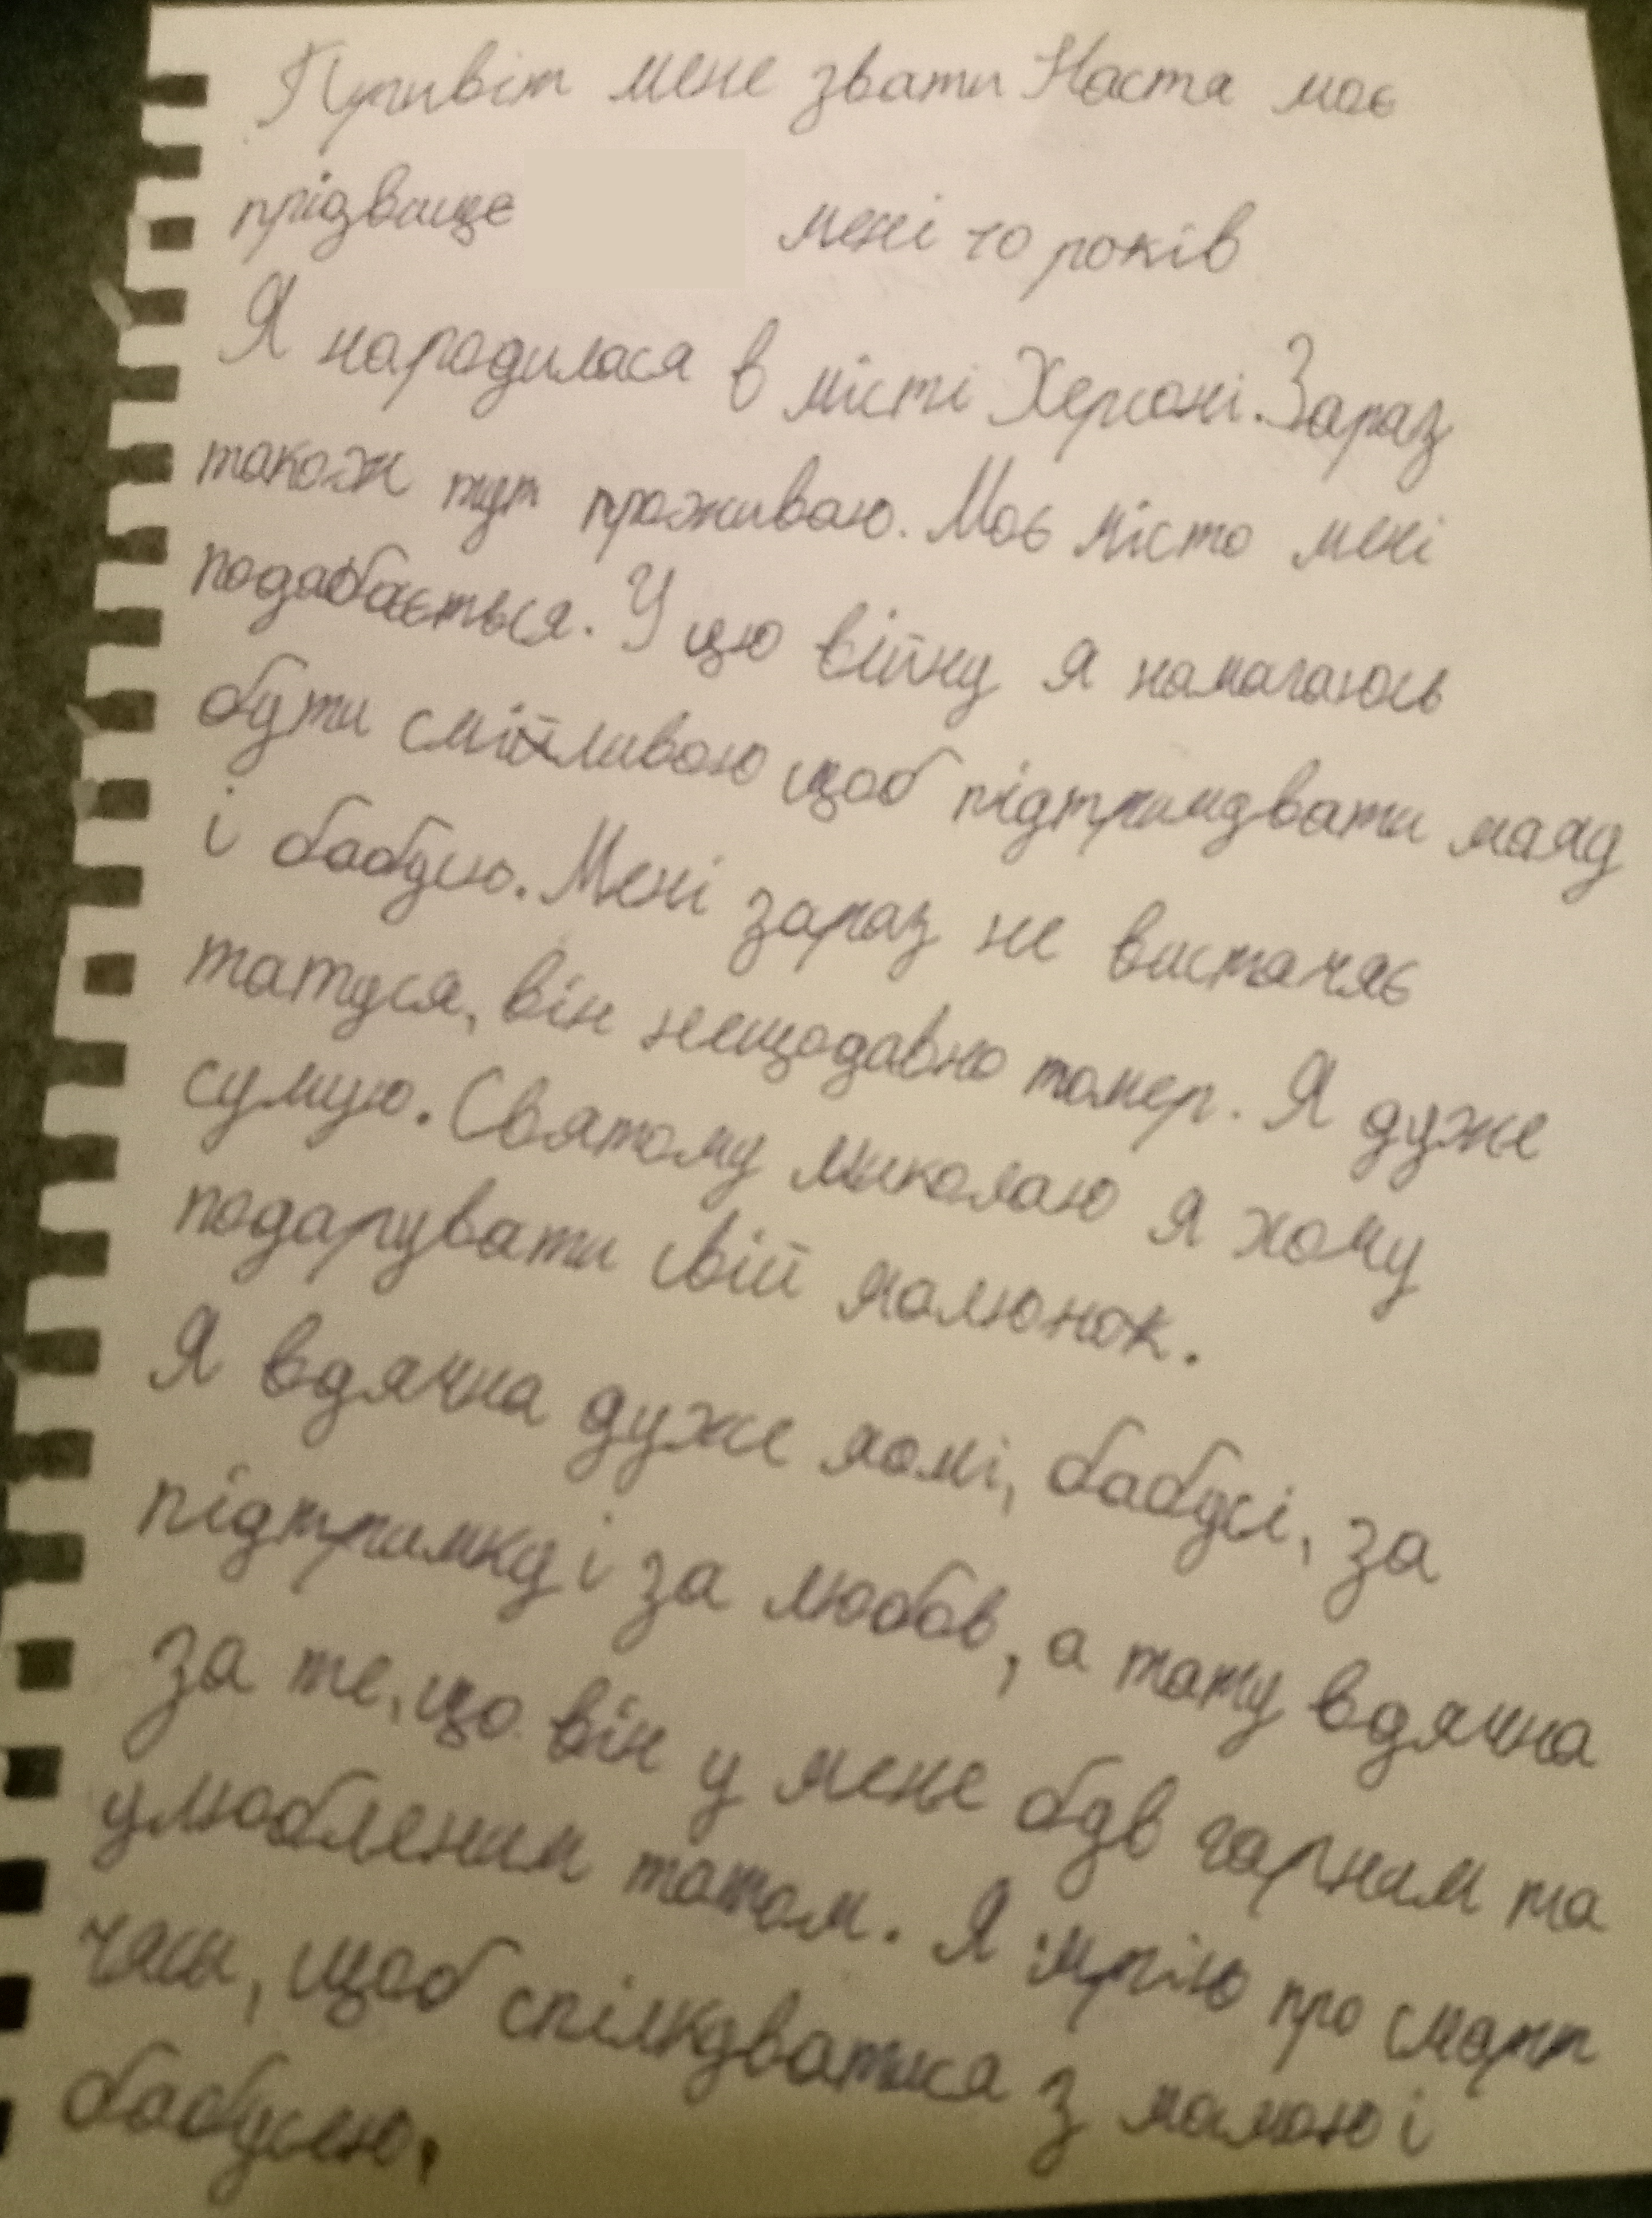 Привіт мене звати Настя моє
прізвище мені 10 років
Я народилася в місті Херсоні. Зараз
також тут проживаю. Моє місто мені
подабається. У цю війну я намагаюсь
бути смітливою щоб підтримувати маму
і бабусю. Мені зараз не вистачає
татуся, він нещодавно помер. Я дуже
сумую. Святому миколаю я хочу
подарувати свій малюнок.
Я вдячна дуже мамі, бабусі, за
підтримку і за любов, а тату вдячна
за те, що він у мене був гарним та
улюбленим татом. Я мрію про смарт
часи, щоб спілкуватися з мамою і
бабусею.